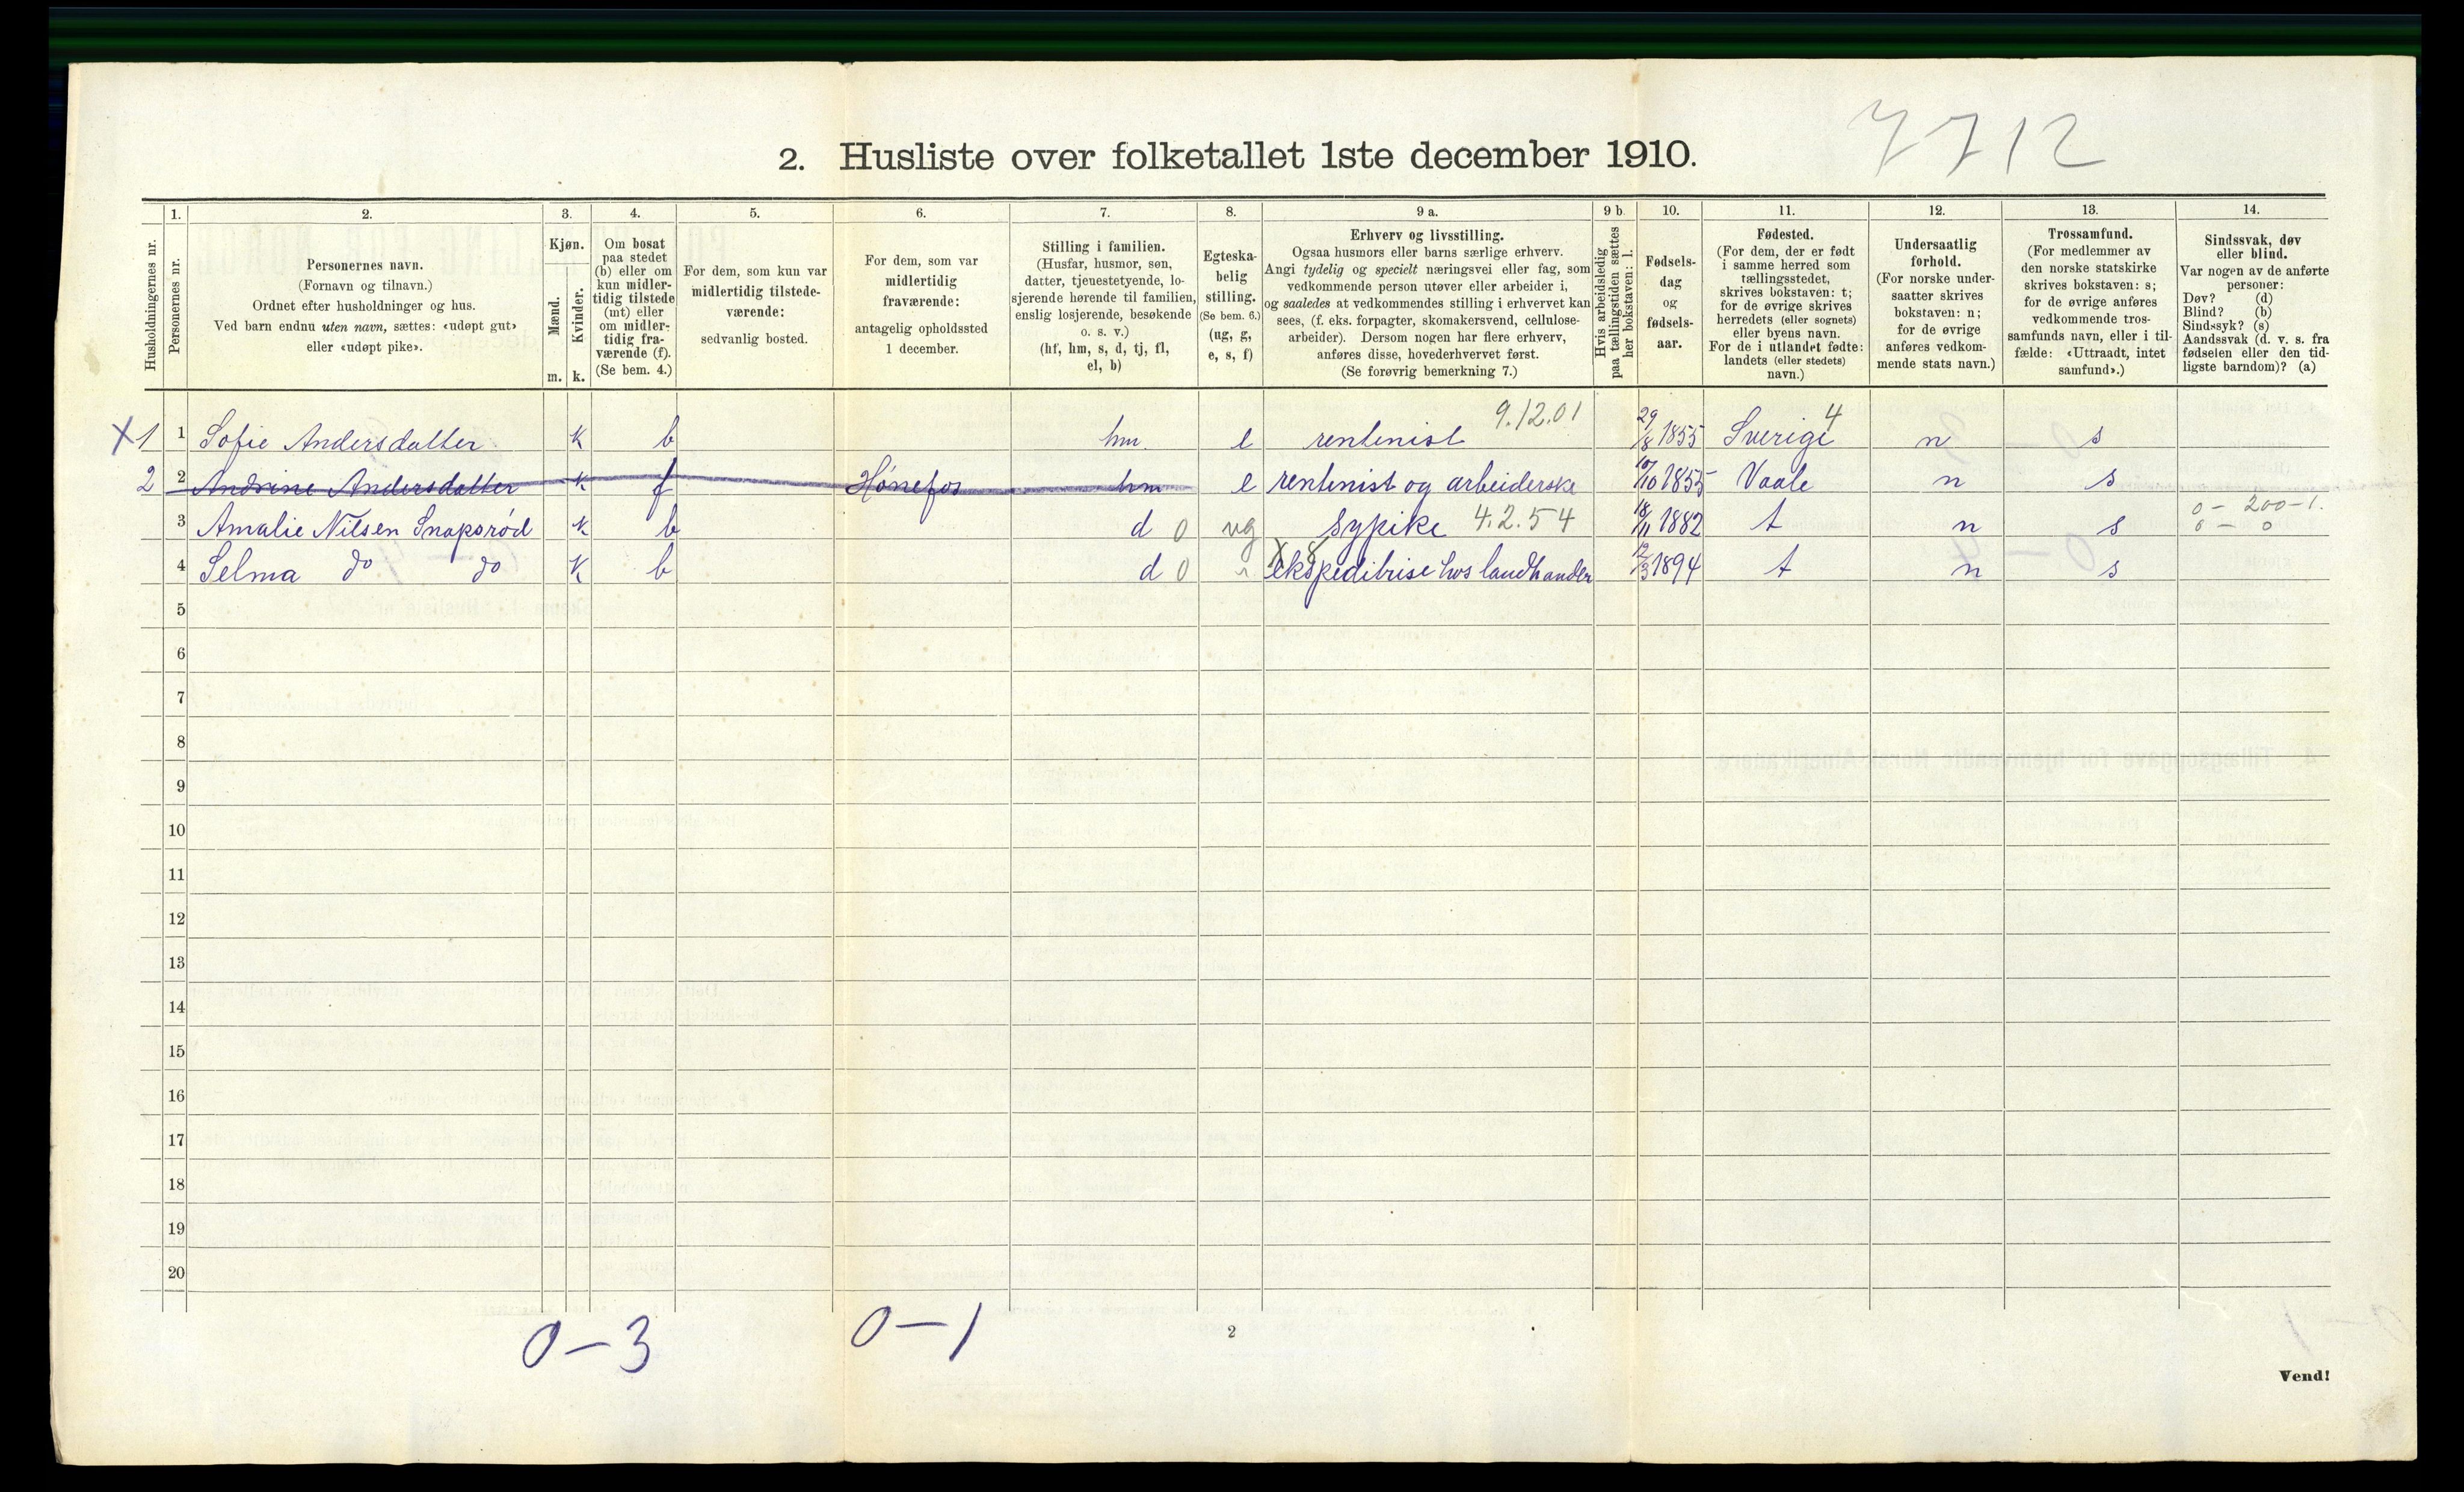 7712
2. Husliste over folketallet 1ste december 1910.
Husholdningernes nr.
1. Personernes nr.
2. Personernes navn. (Fornavn og tilnavn.) Ordnet efter husholdninger og hus. Ved barn endnu uten navn, sættes: «udøpt gut» eller «udøpt pike».
3. Kjøn. Mænd. Kvinder. m. k.
4. Om bosat paa stedet (b) eller om kun midlertidig tilstede (mt) eller om midlertidig fraværende (f). (Se bem. 4.)
5. For dem, som kun var midlertidig tilstedeværende: sedvanlig bosted.
6. For dem, som var midlertidig fraværende: antagelig opholdssted 1 december.
7. Stilling i familien. (Husfar, husmor, søn, datter, tjenestetyende, losjerende hørende til familien, enslig losjerende, besøkende o. s. v.) (hf, hm, s, d, tj, fl, el, b)
8. Egteskabelig stilling. (Se bem. 6.) (ug, g, e, s, f)
9 a. Erhverv og livsstilling. Ogsaa husmors eller barns særlige erhverv. Angi tydelig og specielt næringsvei eller fag, som vedkommende person utøver eller arbeider i, og saaledes at vedkommendes stilling i erhvervet kan sees, (f. eks. forpagter, skomakersvend, cellulosearbeider). Dersom nogen har flere erhverv, anføres disse, hovederhvervet først. (Se forøvrig bemerkning 7.)
9 b. Hvis arbeidsledig paa tællingstiden sættes her bokstaven: l.
10. Fødselsdag og fødselsaar.
11. Fødested. (For dem, der er født i samme herred som tællingsstedet, skrives bokstaven: t; for de øvrige skrives herredets (eller sognets) eller byens navn. For de i utlandet fødte: landets (eller stedets) navn.)
12. Undersaatlig forhold. (For norske undersaatter skrives bokstaven: n; for de øvrige anføres vedkommende stats navn.)
13. Trossamfund. (For medlemmer av den norske statskirke skrives bokstaven: s; for de øvrige anføres vedkommende trossamfunds navn, eller i tilfælde: «Uttraadt, intet samfund».)
14. Sindssvak, døv eller blind. Var nogen av de anførte personer: Døv? (d) Blind? (b) Sindssyk? (s) Aandssvak (d. v. s. fra fødselen eller den tidligste barndom)? (a)
X 1 1 Sofie Andersdatter k b hm e rentenist 9.12.01 29/8 1855 Sverige 4 n s
2 2 Andrine Andersdatter k f Hønefos hm e rentenist og arbeiderske 10/10 1855 Vaale n s
3 Amalie Nilsen Snapsrød k b d 0 ug sypike 4.2.54 18/11 1882 t n s 0 - 200 - 1. 0 - 0
4 Selma do do k b d 0 " X 8 ekspeditrise hos landhandler 12/3 1894 t n s
5
6
7
8
9
10
11
12
13
14
15
16
17
18
19
20
0 - 3
0 - 1
2
Vend!